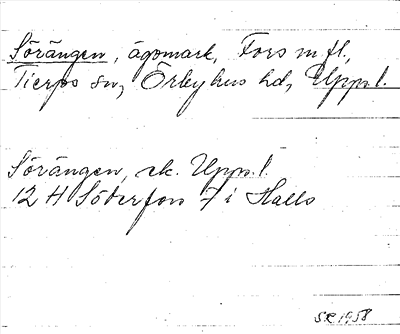 Sörängen, ägomark, Fors m fl.,
Tierps sn, Örbyhus hd, Uppl.
Sörängen, ek. Uppl.
12 H Söderfors 7 i Halls
SR 1958